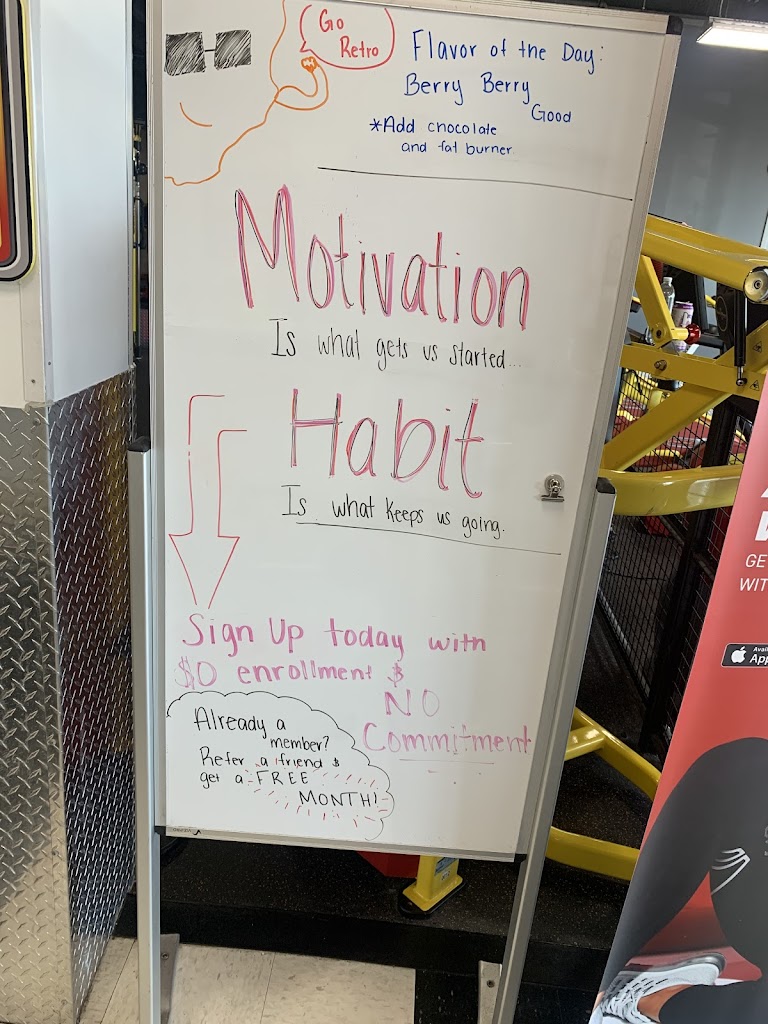 Go
Retro
Flavor of the Day:
Berry Berry
Good
*Add chocolate
and fat burner.
Motivation
Is what gets us started...
Habit
Is what keeps us going.
Sign Up today with
$0 enrollment &
NO
Commitment
Already a
member?
Refer a friend &
get a FREE
MONTH!
GE
WIT
App